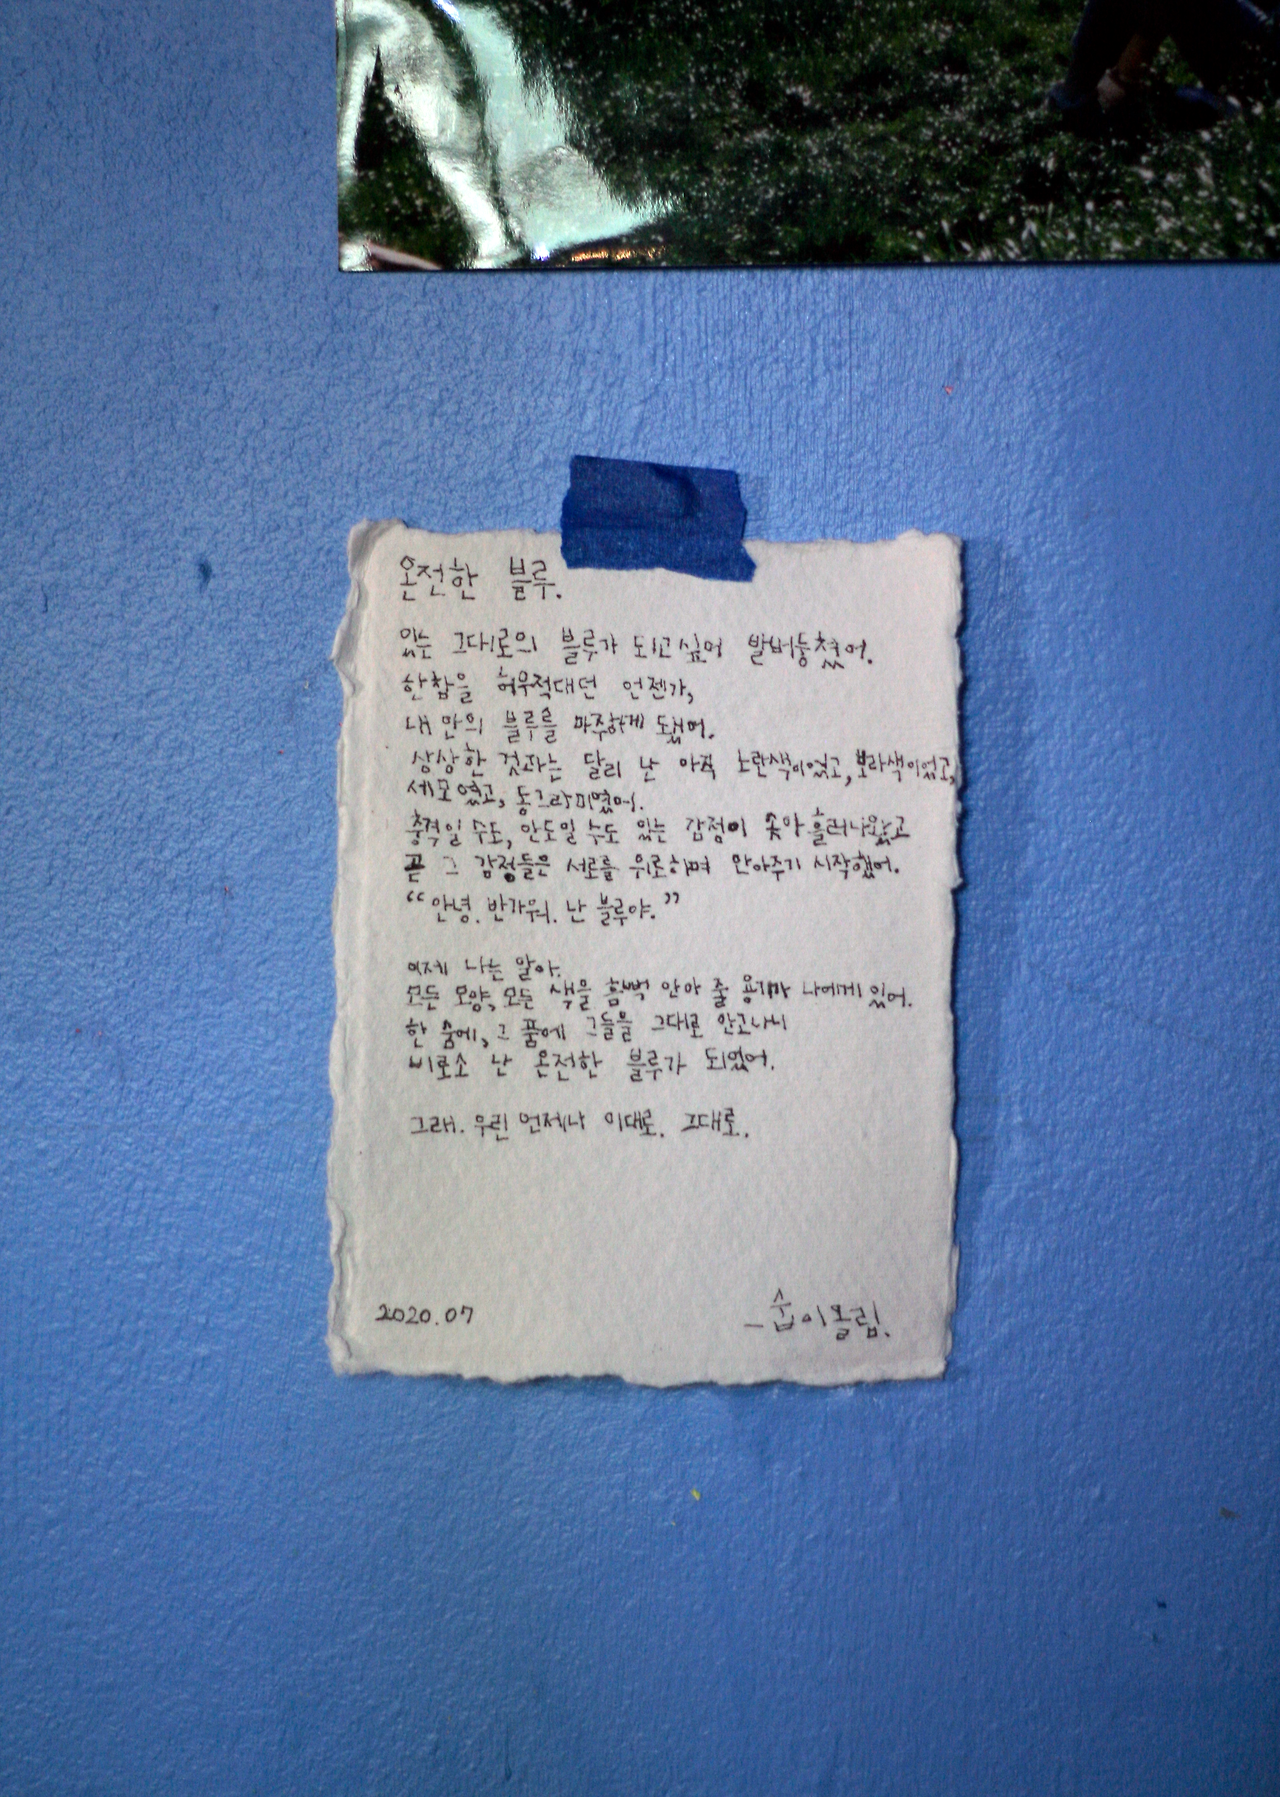 온전한 블루.
있는 그대로의 블루가 되고싶어 발버둥쳤어.
한참을 허우적대던 언젠가,
내 안의 블루를 마주하게 됐어.
상상한 것과는 달리 난 아직 노란색이었고, 보라색이었고,
세모였고, 동그라미였어.
충격일 수도, 안도일 수도 있는 감정이 솟아 흘러나왔고
곧 그 감정들은 서로를 위로하며 안아주기 시작했어.
“안녕. 반가워. 난 블루야.”
이제 나는 알아.
모든 모양, 모든 색을 흠뻑 안아 줄 용기가 나에게 있어.
한 숨에, 그 품에 그들을 그대로 안고나니
비로소 난 온전한 블루가 되었어.
그래. 우린 언제나 이대로. 그대로.
2020.07